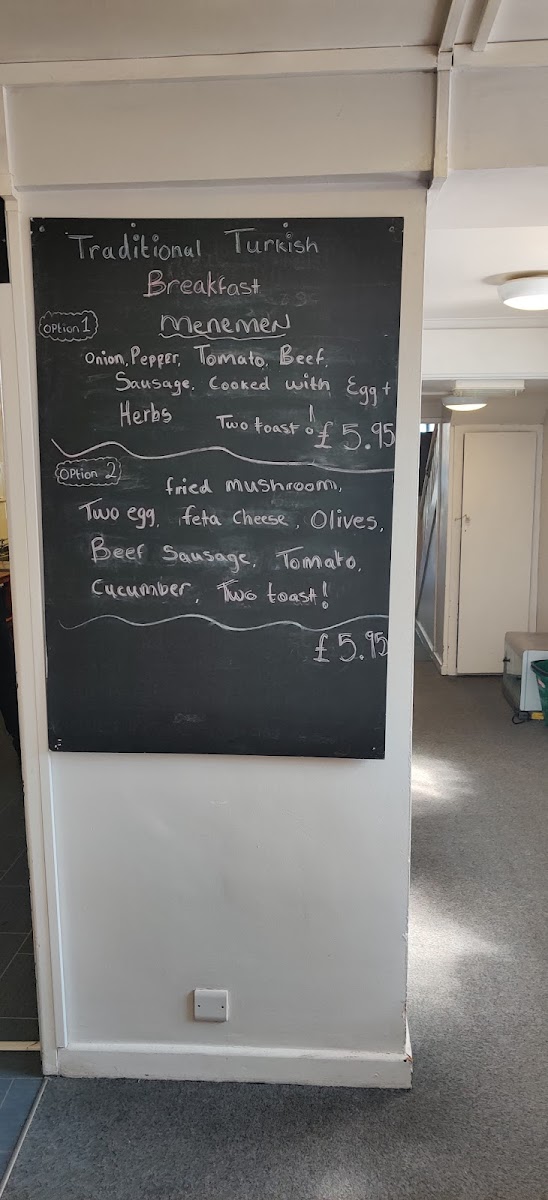 Traditional Turkish
Breakfast
Option 1
Menemen
Onion, Pepper, Tomato, Beef,
Sausage, Cooked with Egg +
Herbs Two toast! £5.95
Option 2
fried mushroom,
Two egg, feta cheese, Olives,
Beef Sausage, Tomato,
Cucumber, Two toast!
£5.95